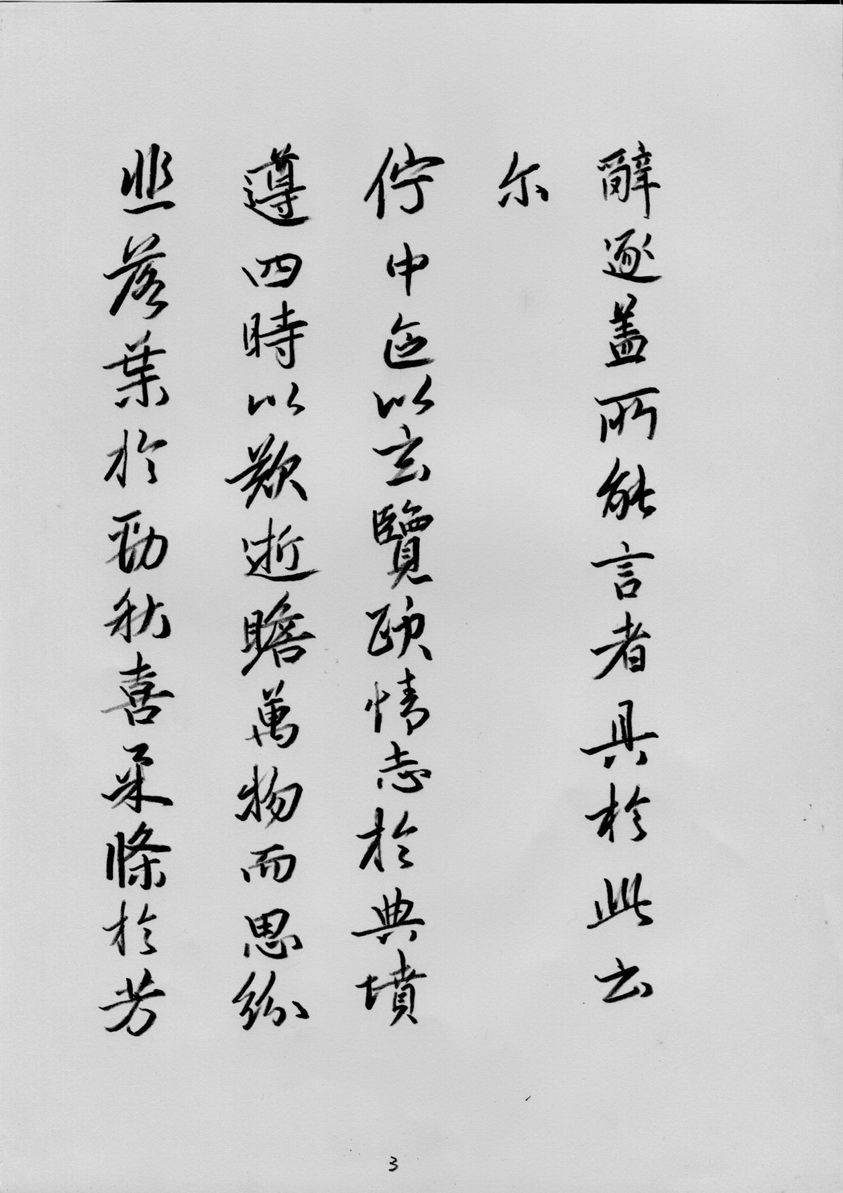 辭逐盖所能言者具於此云
尓
佇中區以玄覽頤情志於典墳
遵四時以歎逝瞻萬物而思紛
悲落葉於勁秋喜柔條於芳
3